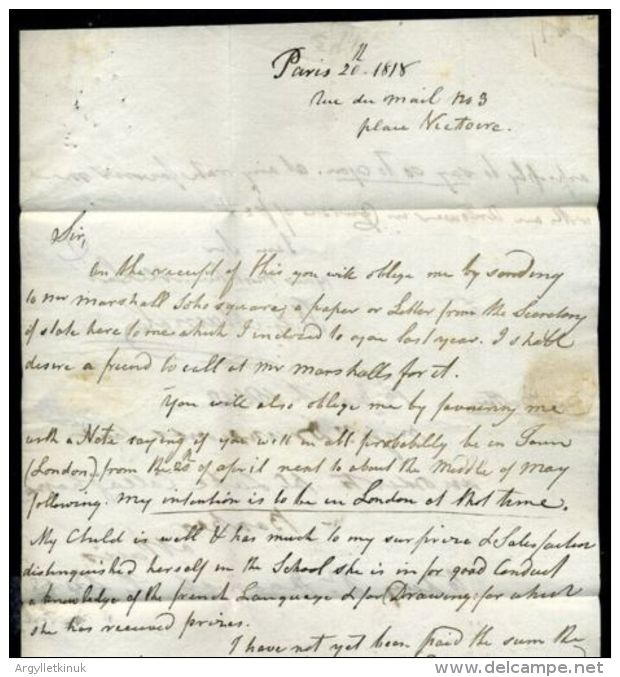 Paris 20th 1818
rue du mail No 3
place Victoire.
Sir,
On the receipt of this you will oblige me by sending
to Mr marshall Soho square, a paper or Letter from the Secretary
of state here to me which I inclosed to you last year. I shall
desire a friend to call at Mr marshalls for it.
You will also oblige me by favouring me
with a Note saying if you will in all probabilly be in Town
(London) from the 25th of april next to about the Middle of May
following. my intention is to be in London at that time.
My Child is well & has much to my surprize & Satisfaction
distinguished herself in the School she is in for good Conduct
a knowledge of the french Language & for Drawing for which
she has received prizes.
I have not yet been paid the sum the
Argylletkinuk
www.delcampe.net